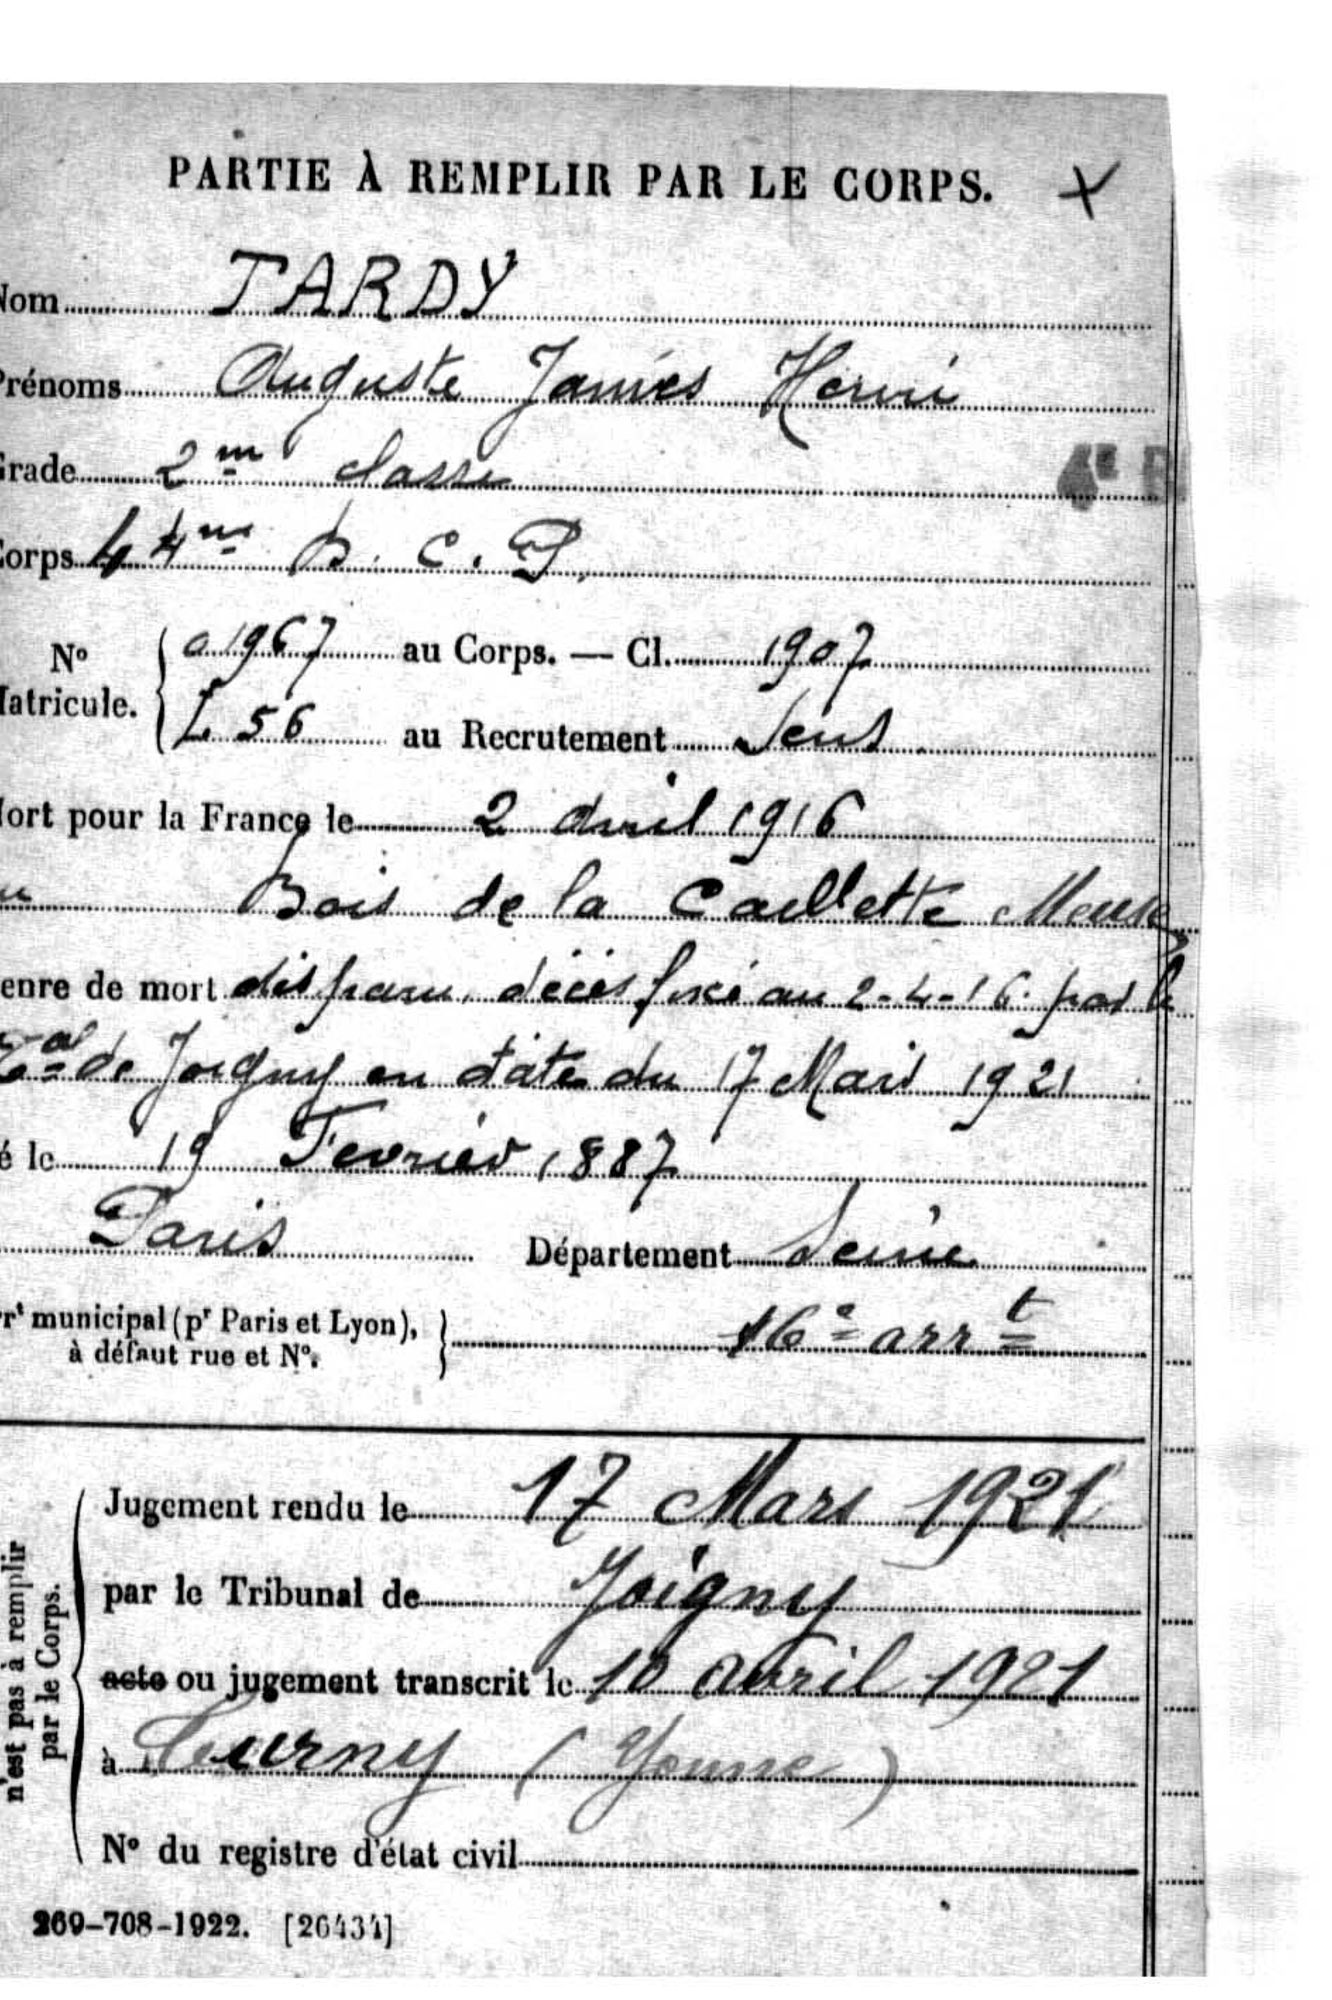 PARTIE À REMPLIR PAR LE CORPS. X
Nom TARDY
Prénoms Auguste James Henri
Grade 2me classe
4e B
Corps 44me B. C. P.
No Matricule. { 01967 au Corps. — Cl. 1907
L. 56 au Recrutement Sens
Mort pour la France le 2 Avril 1916
Bois de la Caillette Meuse
enre de mort disparu, décès fixé au 2-4-16 par le
Tal de Joigny en date du 17 Mars 1921
é le 19 Fevrier 1887
Paris Département Seine
rrt municipal (pr Paris et Lyon), à défaut rue et No. } 16e arrt
n'est pas à remplir par le Corps.
Jugement rendu le 17 Mars 1921
par le Tribunal de Joigny
acte ou jugement transcrit le 10 avril 1921
à (Yonne)
No du registre d'état civil
269-708-1922. [26434]